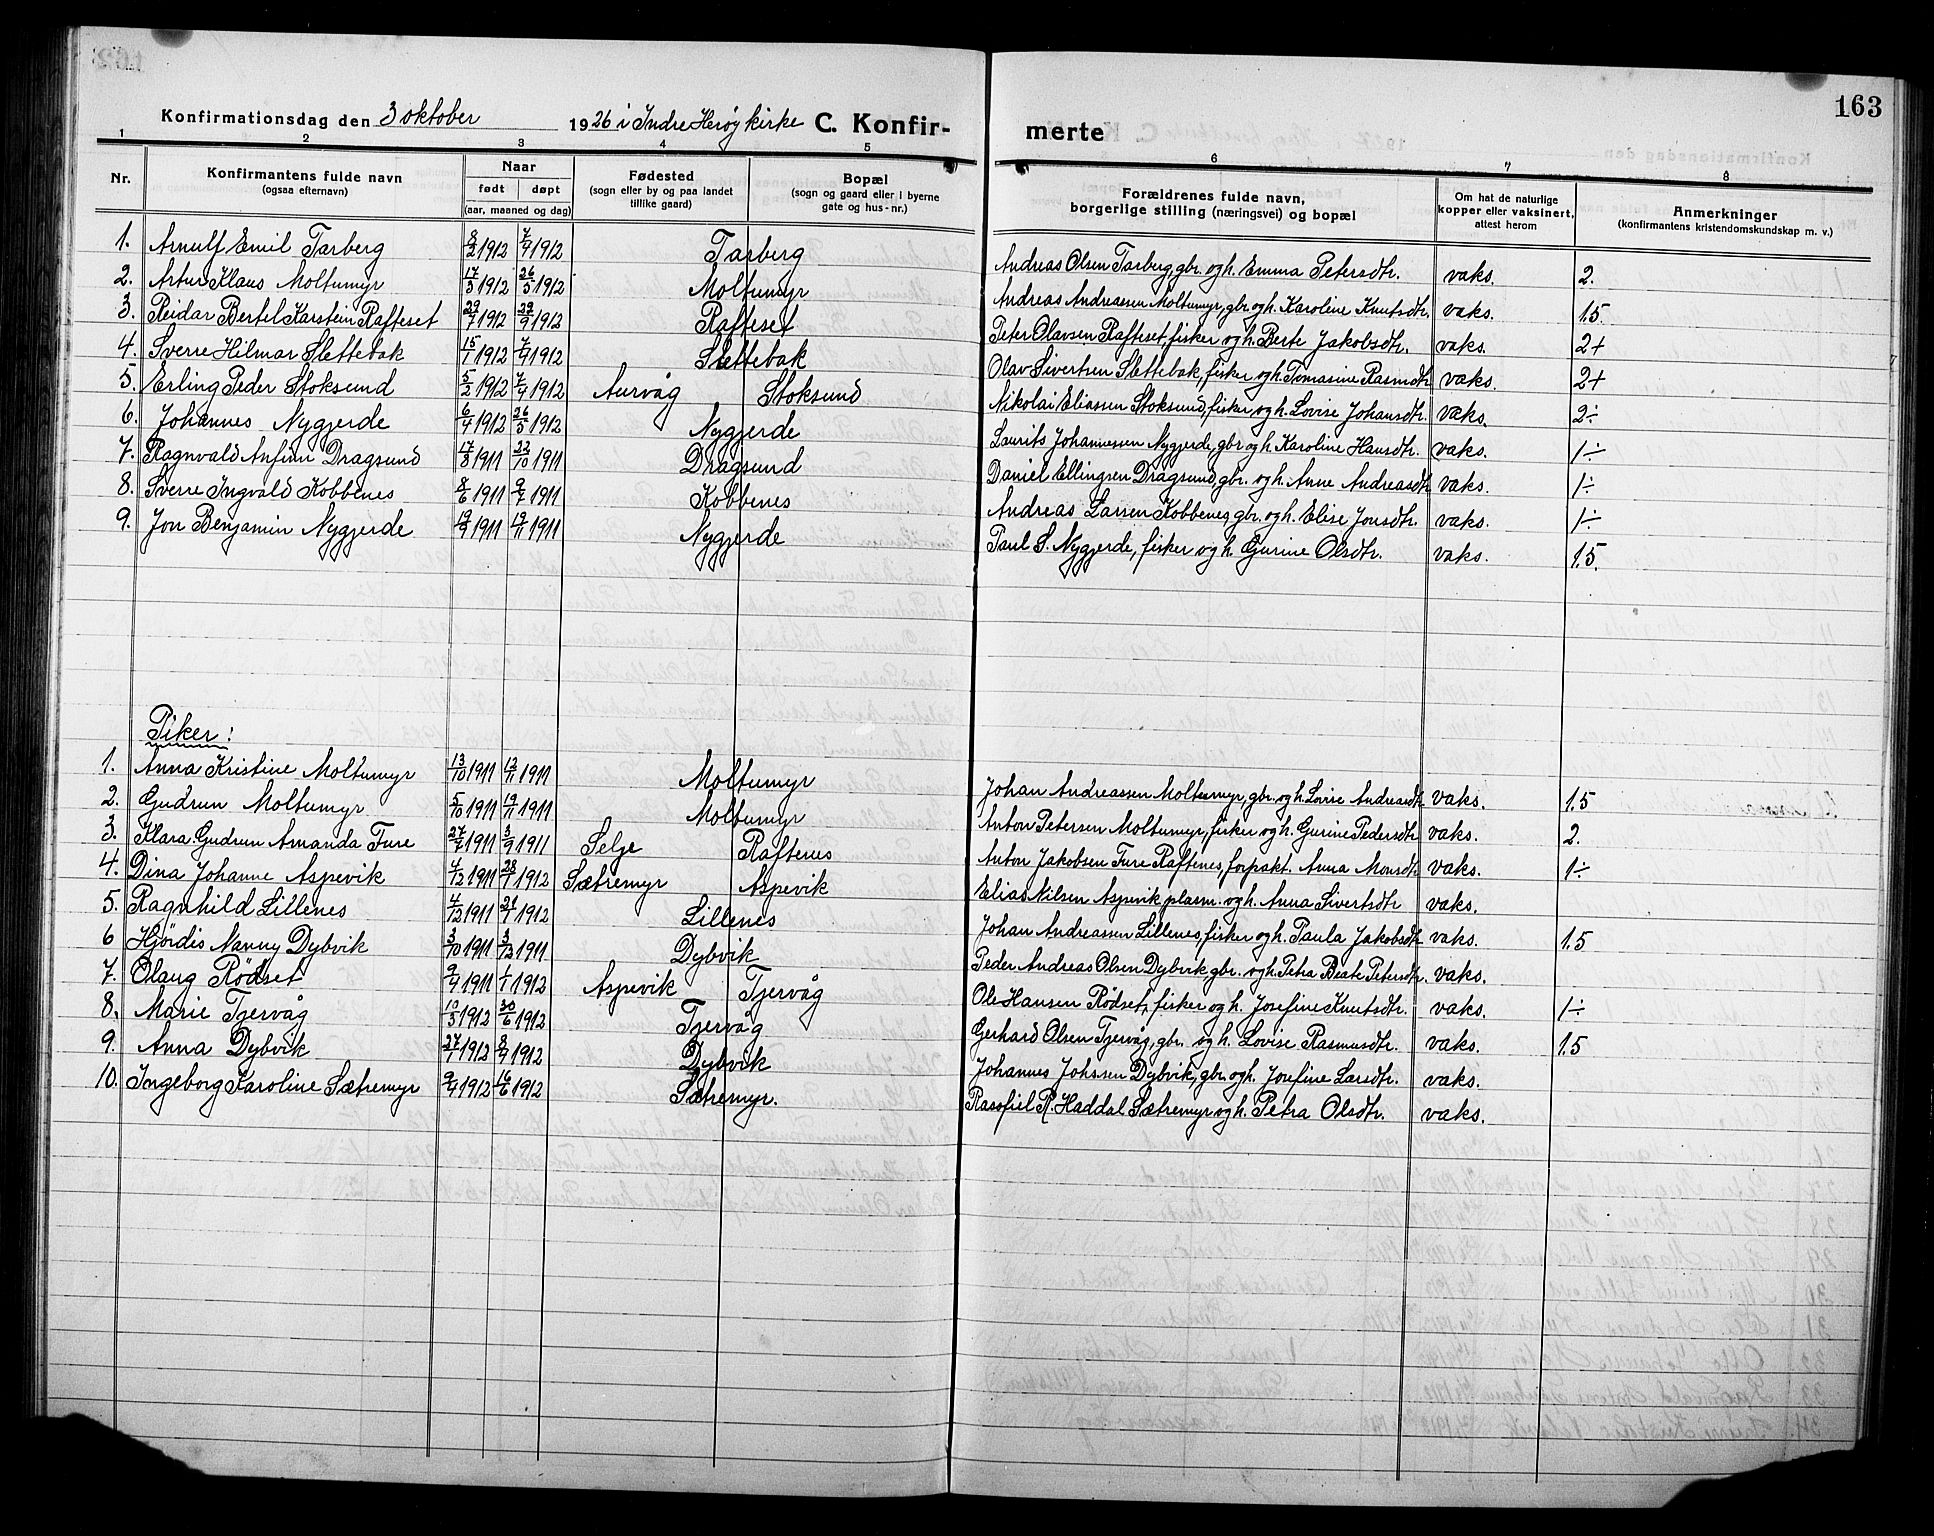 163
Konfirmationsdag den 3 oktober 1926 i Indre Herøy kirke C. Konfir- merte
1 2 3 4 5 6 7 8
Nr. Konfirmantens fulde navn (ogsaa efternavn) Naar født døpt (aar, maaned og dag) Fødested (sogn eller by og paa landet tillike gaard) Bopæl (sogn og gaard eller i byerne gate og hus-nr.) Forældrenes fulde navn, borgerlige stilling (næringsvei) og bopæl Om hat de naturlige kopper eller vaksinert, attest herom Anmerkninger (konfirmantens kristendomskundskap m. v.)
1. Arnulf Emil Tarberg 8/2 1912 7/9 1912 Tarberg Andreas Olsen Tarberg, gbr. og h. Emma Petersdtr. vaks. 2.
2. Artur Klaus Moltumyr 17/3 1912 26/5 1912 Moltumyr Andreas Andreassen Moltumyr, gbr. og h. Karoline Knutsdtr. vaks. 1.5.
3. Reidar Bertel Karstein Rafteset 29/7 1912 22/9 1912 Rafteset Peter Olavsen Rafteset, fisker og h. Berte Jakobsdtr. vaks. 2+
4. Sverre Hilmar Slettebak 15/1 1912 7/9 1912 Slettebak Olav Sivertsen Slettebak, fisker og h. Tomasine Rasmdtr. vaks. 2+
5. Erling Peder Stoksund 5/2 1912 7/4 1912 Aurvåg Stoksund Nikolai Eliassen Stoksund, fisker og h. Lovise Johansdtr. vaks. 2÷
6. Johannes Nygjerde 6/4 1912 26/5 1912 Nygjerde Laurits Johannessen Nygjerde, gbr. og h. Karoline Hansdtr. vaks. 1÷
7. Ragnvald Anfinn Dragsund 17/8 1911 22/10 1911 Dragsund Daniel Ellingsen Dragsund, gbr. og h. Anne Andreasdtr vaks. 1÷
8. Sverre Ingvald Kobbenes 8/6 1911 9/7 1911 Kobbenes Andreas Larsen Kobbenes, gbr. og h. Elise Jonsdtr. vaks. 1÷
9. Jon Benjamin Nygjerde 19/9 1911 19/11 1911 Nygjerde Paul S. Nygjerde, fisker og h. Gurine Olsdtr. vaks. 1.5.
Piker:
1. Anna Kristine Moltumyr 13/10 1911 12/11 1911 Moltumyr Johan Andreassen Moltumyr, gbr. og h. Lovise Andreasdtr vaks. 1.5
2. Gudrun Moltumyr 5/10 1911 19/11 1911 Moltumyr Anton Petersen Moltumyr, fisker og h. Gurine Pedersdtr vaks. 2.
3. Klara Gudrun Amanda Ture 27/7 1911 3/9 1911 Selje Raftenes Anton Jakobsen Ture Raftenes, forpakt. Anna Monsdtr vaks. 1÷
4. Dina Johanne Aspevik 4/12 1911 28/1 1912 Sætremyr Aspevik Elias Nilsen Aspevik plasm. og h. Anna Sivertsdtr vaks.
5. Ragnhild Lillenes 4/12 1911 21/1 1912 Lillenes Johan Andreassen Lillenes, fisker og h. Paula Jakobsdtr vaks. 1.5
6 Hjördis Nanny Dybvik 3/10 1911 3/12 1911 Dybvik Peder Andreas Olsen Dybvik, gbr. og h. Petra Beate Petersdtr vaks.
7. Olaug Rödset 9/9 1911 1/1 1912 Aspevik Tjervåg Ole Hansen Rödset, fisker og h. Josefine Knutsdtr. vaks. 1÷
8. Marie Tjervåg 10/5 1912 30/6 1912 Tjervåg Gerhard Olsen Tjervåg, gbr. og h. Lovise Rasmusdtr. vaks. 1.5
9. Anna Dybvik 27/1 1912 8/4 1912 Dybvik Johannes Johssen Dybvik, gbr. og h. Josefine Larsdtr. vaks.
10. Ingeborg Karoline Sætremyr 9/4 1912 16/6 1912 Sætremyr. Rasofiel R. Haddal Sætremyr og h. Petra Olsdtr. vaks.